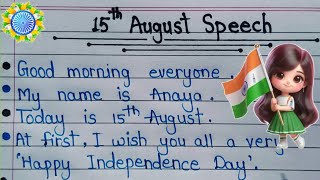 15th August Speech
Good morning everyone.
My name is Anaya.
Today is 15th August.
At first, I wish you all a very
'Happy Independence Day'.